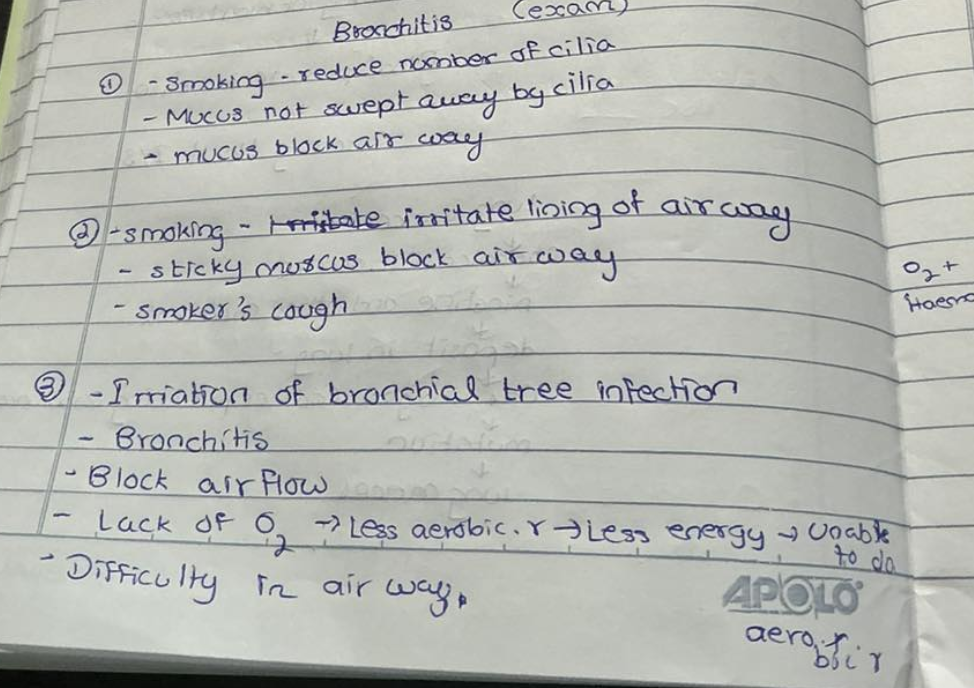 Bronchitis (exam)
① - Smoking - reduce number of cilia
- Mucus not swept away by cilia
- mucus block air way
② - smoking - irritate lining of air way
- sticky muscus block air way
- smoker's cough
③ - Irriation of bronchial tree infection
- Bronchitis
- Block air flow
- Lack of O2 → Less aerobic. r → Less energy → Unable
to do
- Difficulty in air way.
APOLO
aero
r
O2 +
Haemo